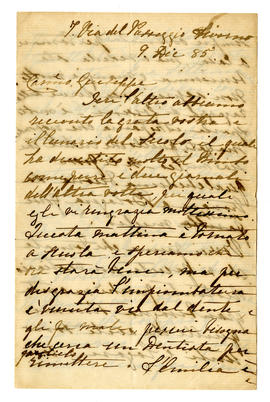 7. Via del Passeggio Livorno
9. Dic 85.
Caro Giuseppe
Ieri l'altro abbiamo
ricevuto la grata vostra
il lunario del Secolo, il quale
ha divertito molto il
e due giornali
dell'altra volta, quali
egli vi ringrazia moltissimo.
mattina è tornato
a scuola e speriamo che
starà bene, ma per
disgrazia l'impiombatura
è venuta via dal dente e
gli fa male, perciò bisogna
che cerca un Dentista per
rimettere. L'Emilia è